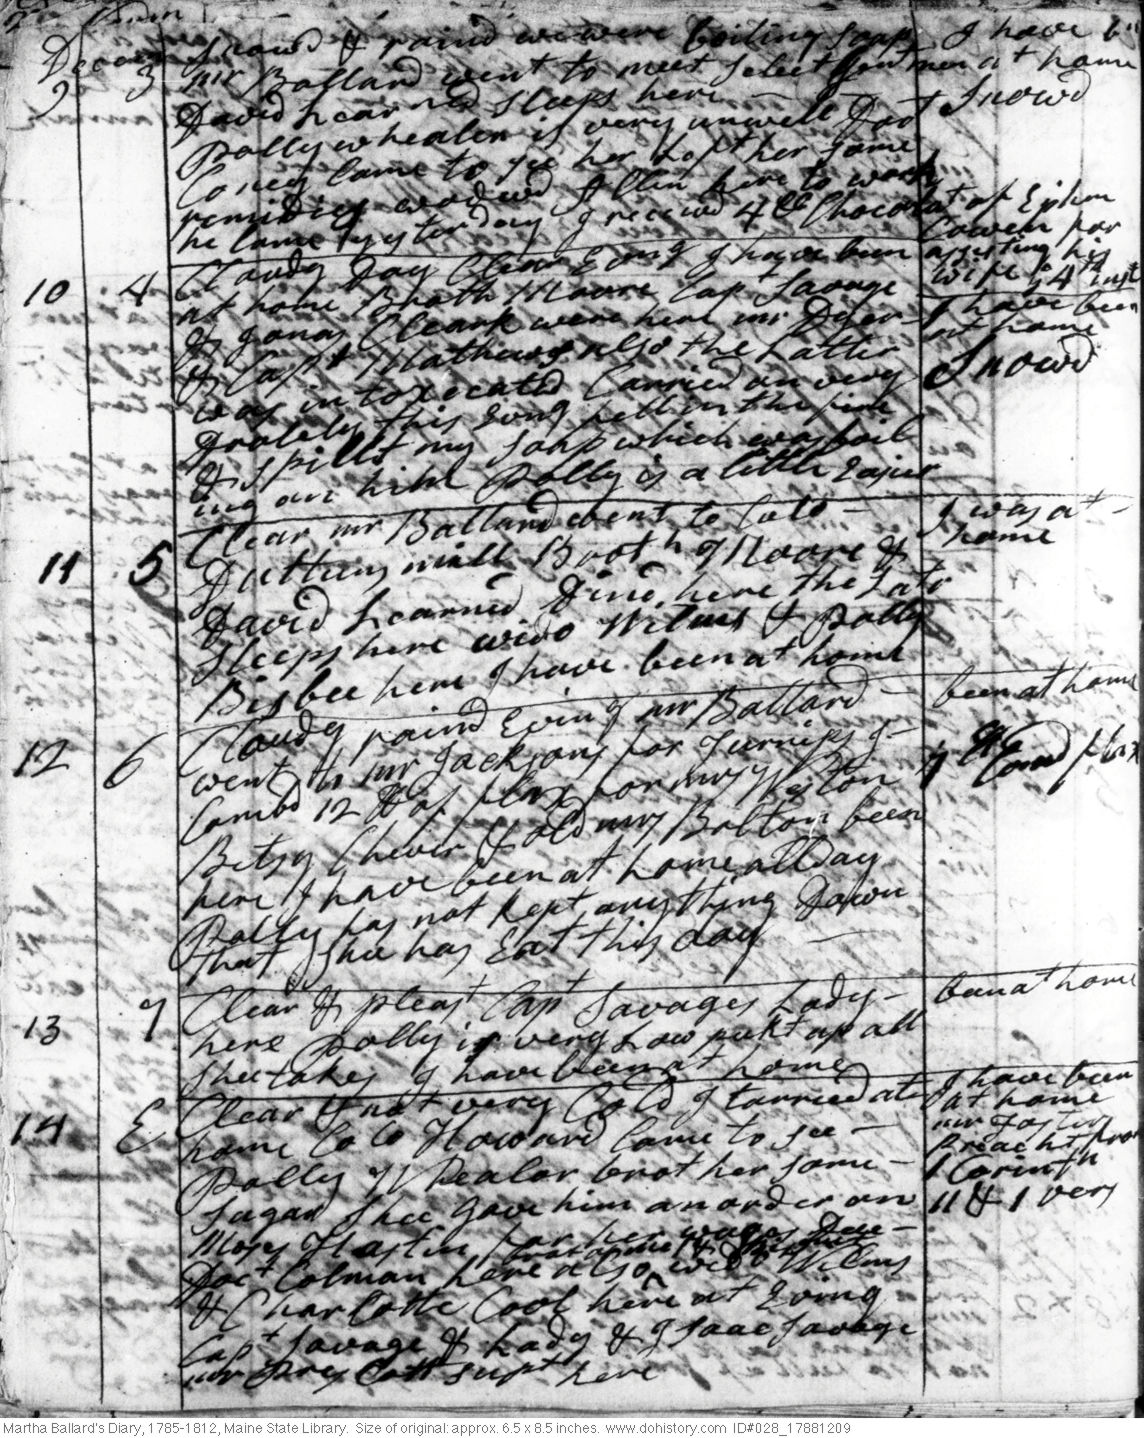 Decem
9 3 Snowd & raind we were boiling soap I have b
mr Ballard went to meet Select men at home
David Learned Sleeps here — Snowd
Polly whealer is very unwell Doct
Coney Came to see her Left her some
remidies
he Came yesterday I received 4 lb Chocolat of Ephm
Cowen for
assisting his
wife ye 4th inst
10 4 Cloudy Day Clear Evng I have been I have been
at home Broth Moore Capt Savage at home
& Jonas Cleark were here mr Dyer Snowd
& Capt Mathews also the Latter
was intoxecated Carried on very
this Evng fell in the fire
& spillt my soap which was boil
ing on him Polly is a little Easier
11 5 Clear mr Ballard went to Colo — I was at —
Duttuns mill Broth Moore & home
David Learned Dind here the Latr
sleeps here wido Wilms & Polly
Bisbee here I have been at home
12 6 Cloudy raind Evining mr Ballard — been at home
went to mr Jacksons for Turnips I —
Combd 12 lb of flax for mrs Weston Comd flax
Betsy Chever & old mrs Bolton been
here I have been at home all Day
Polly has not kept any thing Down
that Shee has Eat this day —
13 7 Clear & pleast Capt Savages Lady — been at home
here Polly is very Low pukt up all
shee takes I have been at home
14 E Clear & not very Cold I tarried at I have been
home Colo Howard Came to see — at home
Polly Whealor brot her some — mr Foster
sugar Shee gave him an order on Preacht from
Moses Hastin for her wages 1 Corinth
Doct Colman here also wido Wilms 11 & 1 vers
& Charlotte Cool here at Evng
Capt Savage & Lady & Isaac Savage
mr Prescott supt here
Martha Ballard's Diary, 1785-1812, Maine State Library. Size of original: approx. 6.5 x 8.5 inches. www.dohistory.com ID#028_17881209